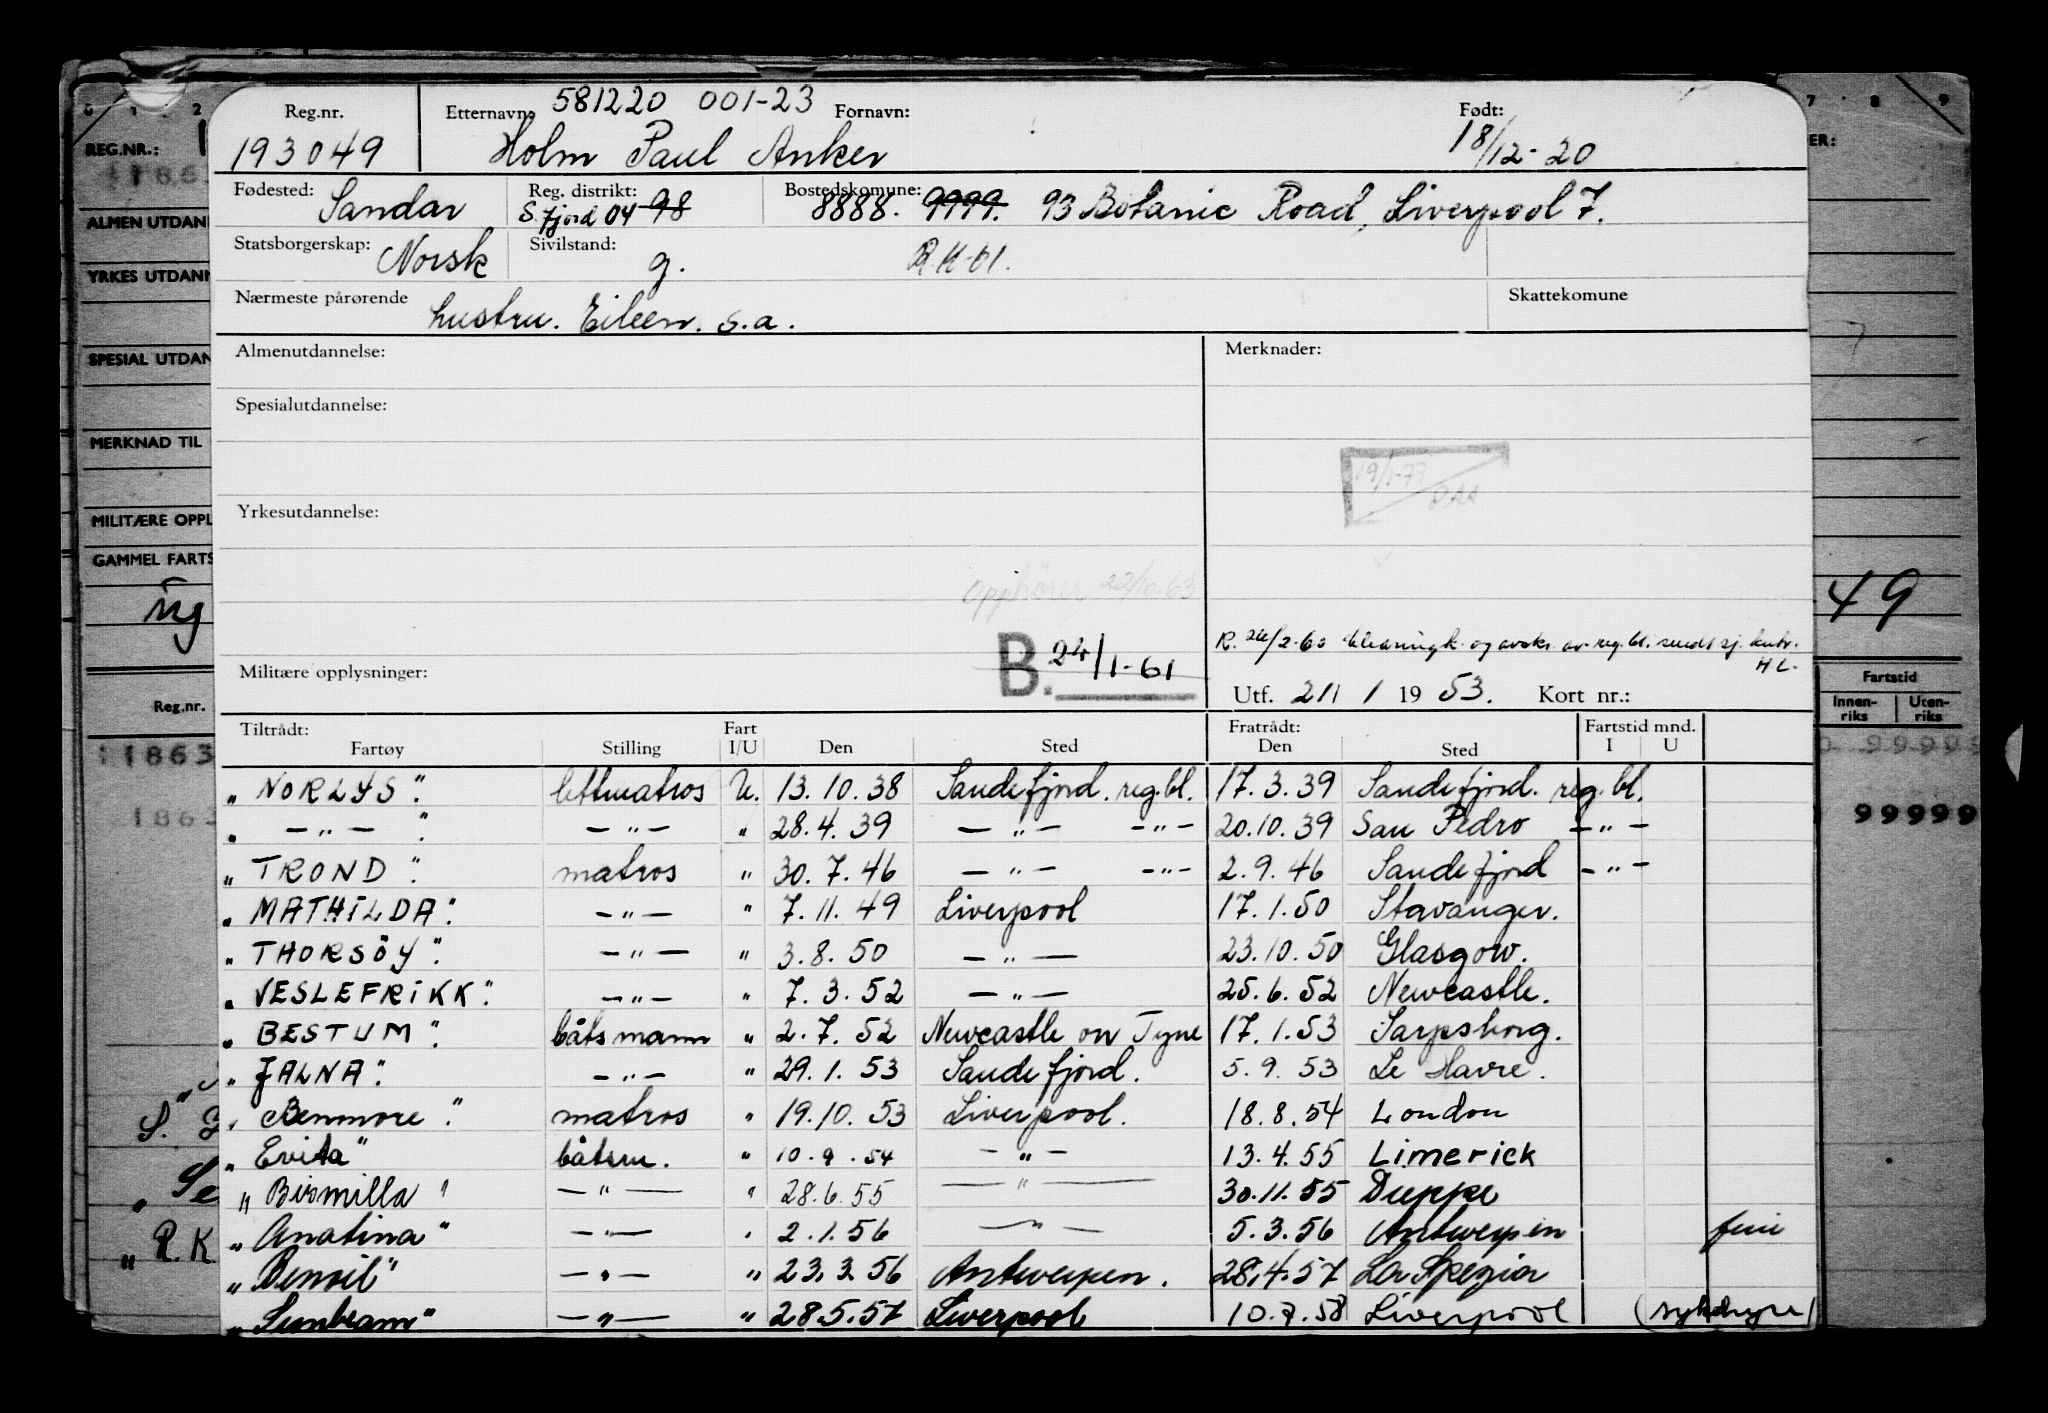 581220 001-23
Reg.nr. Etternavn: Fornavn: Født:
193049 Holm Paul Anker 18/12-20
Fødested: Sandar Reg. distrikt: S.fjord 04 98 Bostedskomune: 8888. 9999. 93 Botanic Road, Liverpool 7.
Statsborgerskap: Norsk Sivilstand: g. R.K-61.
Nærmeste pårørende hustru. Eileen. s.a. Skattekomune
Almenutdannelse: Merknader:
Spesialutdannelse:
19/1-77
Yrkesutdannelse:
Opphörer 22/10.63
R. 26/2-60 og av reg.bl. sendt sj.
H L.
Militære opplysninger: B. 24/1-61 Utf. 21/ 1 19 53. Kort nr.:
Tiltrådt: Fart Fratrådt: Fartstid mnd.
Fartøy Stilling I/U Den Sted Den Sted I U
„ NORLYS". lettmatros U. 13.10.38 Sandefjord. reg.bl. 17.3.39 Sandefjord. reg.bl.
„ —"— ". —"— " 28.4.39 —"— —"— 20.10.39 San Pedro —"—
„ TROND". matros " 30.7.46 —"— —"— 2.9.46 Sandefjord —"—
„ MATHILDA". —"— " 7.11.49 Liverpool 17.1.50 Stavanger.
„ THORSÖY". —"— " 3.8.50 —"— 23.10.50 Glasgow.
„ VESLEFRIKK". —"— " 7.3.52 —"— 25.6.52 Newcastle.
„ BESTUM". båtsmann " 2.7.52 Newcastle on Tyne 17.1.53 Sarpsborg.
„ JALNA". —"— " 29.1.53 Sandefjord. 5.9.53 Le Havre.
„ Benmore". matros " 19.10.53 Liverpool. 18.8.54 London
„ Evita" båtsm. " 10.9.54 —"— 13.4.55 Limerick
„ Bismilla" —"— " 28.6.55 —"— 30.11.55 Dieppe
„ Anatina" —"— " 2.1.56 —"— 5.3.56 Antwerpen ferie
„ Benoil" —"— " 23.3.56 Antwerpen. 28.4.57 La Spezia
„ Sunbeam" —"— " 28.5.57 Liverpool 10.7.58 Liverpool
REG.NR.:
1863
ALMEN UTDAN
YRKES UTDAN
SPESIAL UTDAN
MERKNAD TIL
MILITÆRE OPPL
GAMMEL FARTS
ug
Reg.nr.
11863
1863
„ R.K
7 8 9
ER:
49
Fartstid
Innen-riks Uten-riks
0 99999
99999